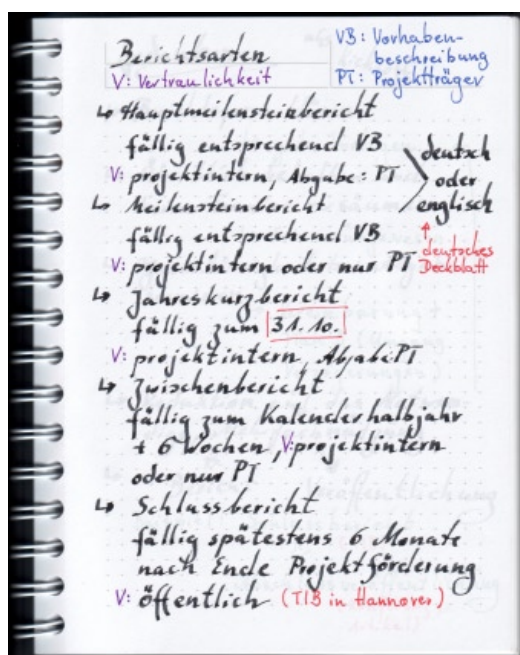 Berichtsarten
V: Vertraulichkeit
VB: Vorhaben-
beschreibung
PT: Projektträger
↳ Hauptmeilensteinbericht
fällig entsprechend VB
V: projektintern, Abgabe: PT
↳ Meilensteinbericht
fällig entsprechend VB
V: projektintern oder nur PT
deutsch
oder
englisch
↑
deutsches
Deckblatt
↳ Jahreskurzbericht
fällig zum 31.10.
V: projektintern, Abgabe PT
↳ Zwischenbericht
fällig zum Kalenderhalbjahr
+ 6 Wochen, V: projektintern
oder nur PT
↳ Schlussbericht
fällig spätestens 6 Monate
nach Ende Projektförderung
V: öffentlich (TIB in Hannover)